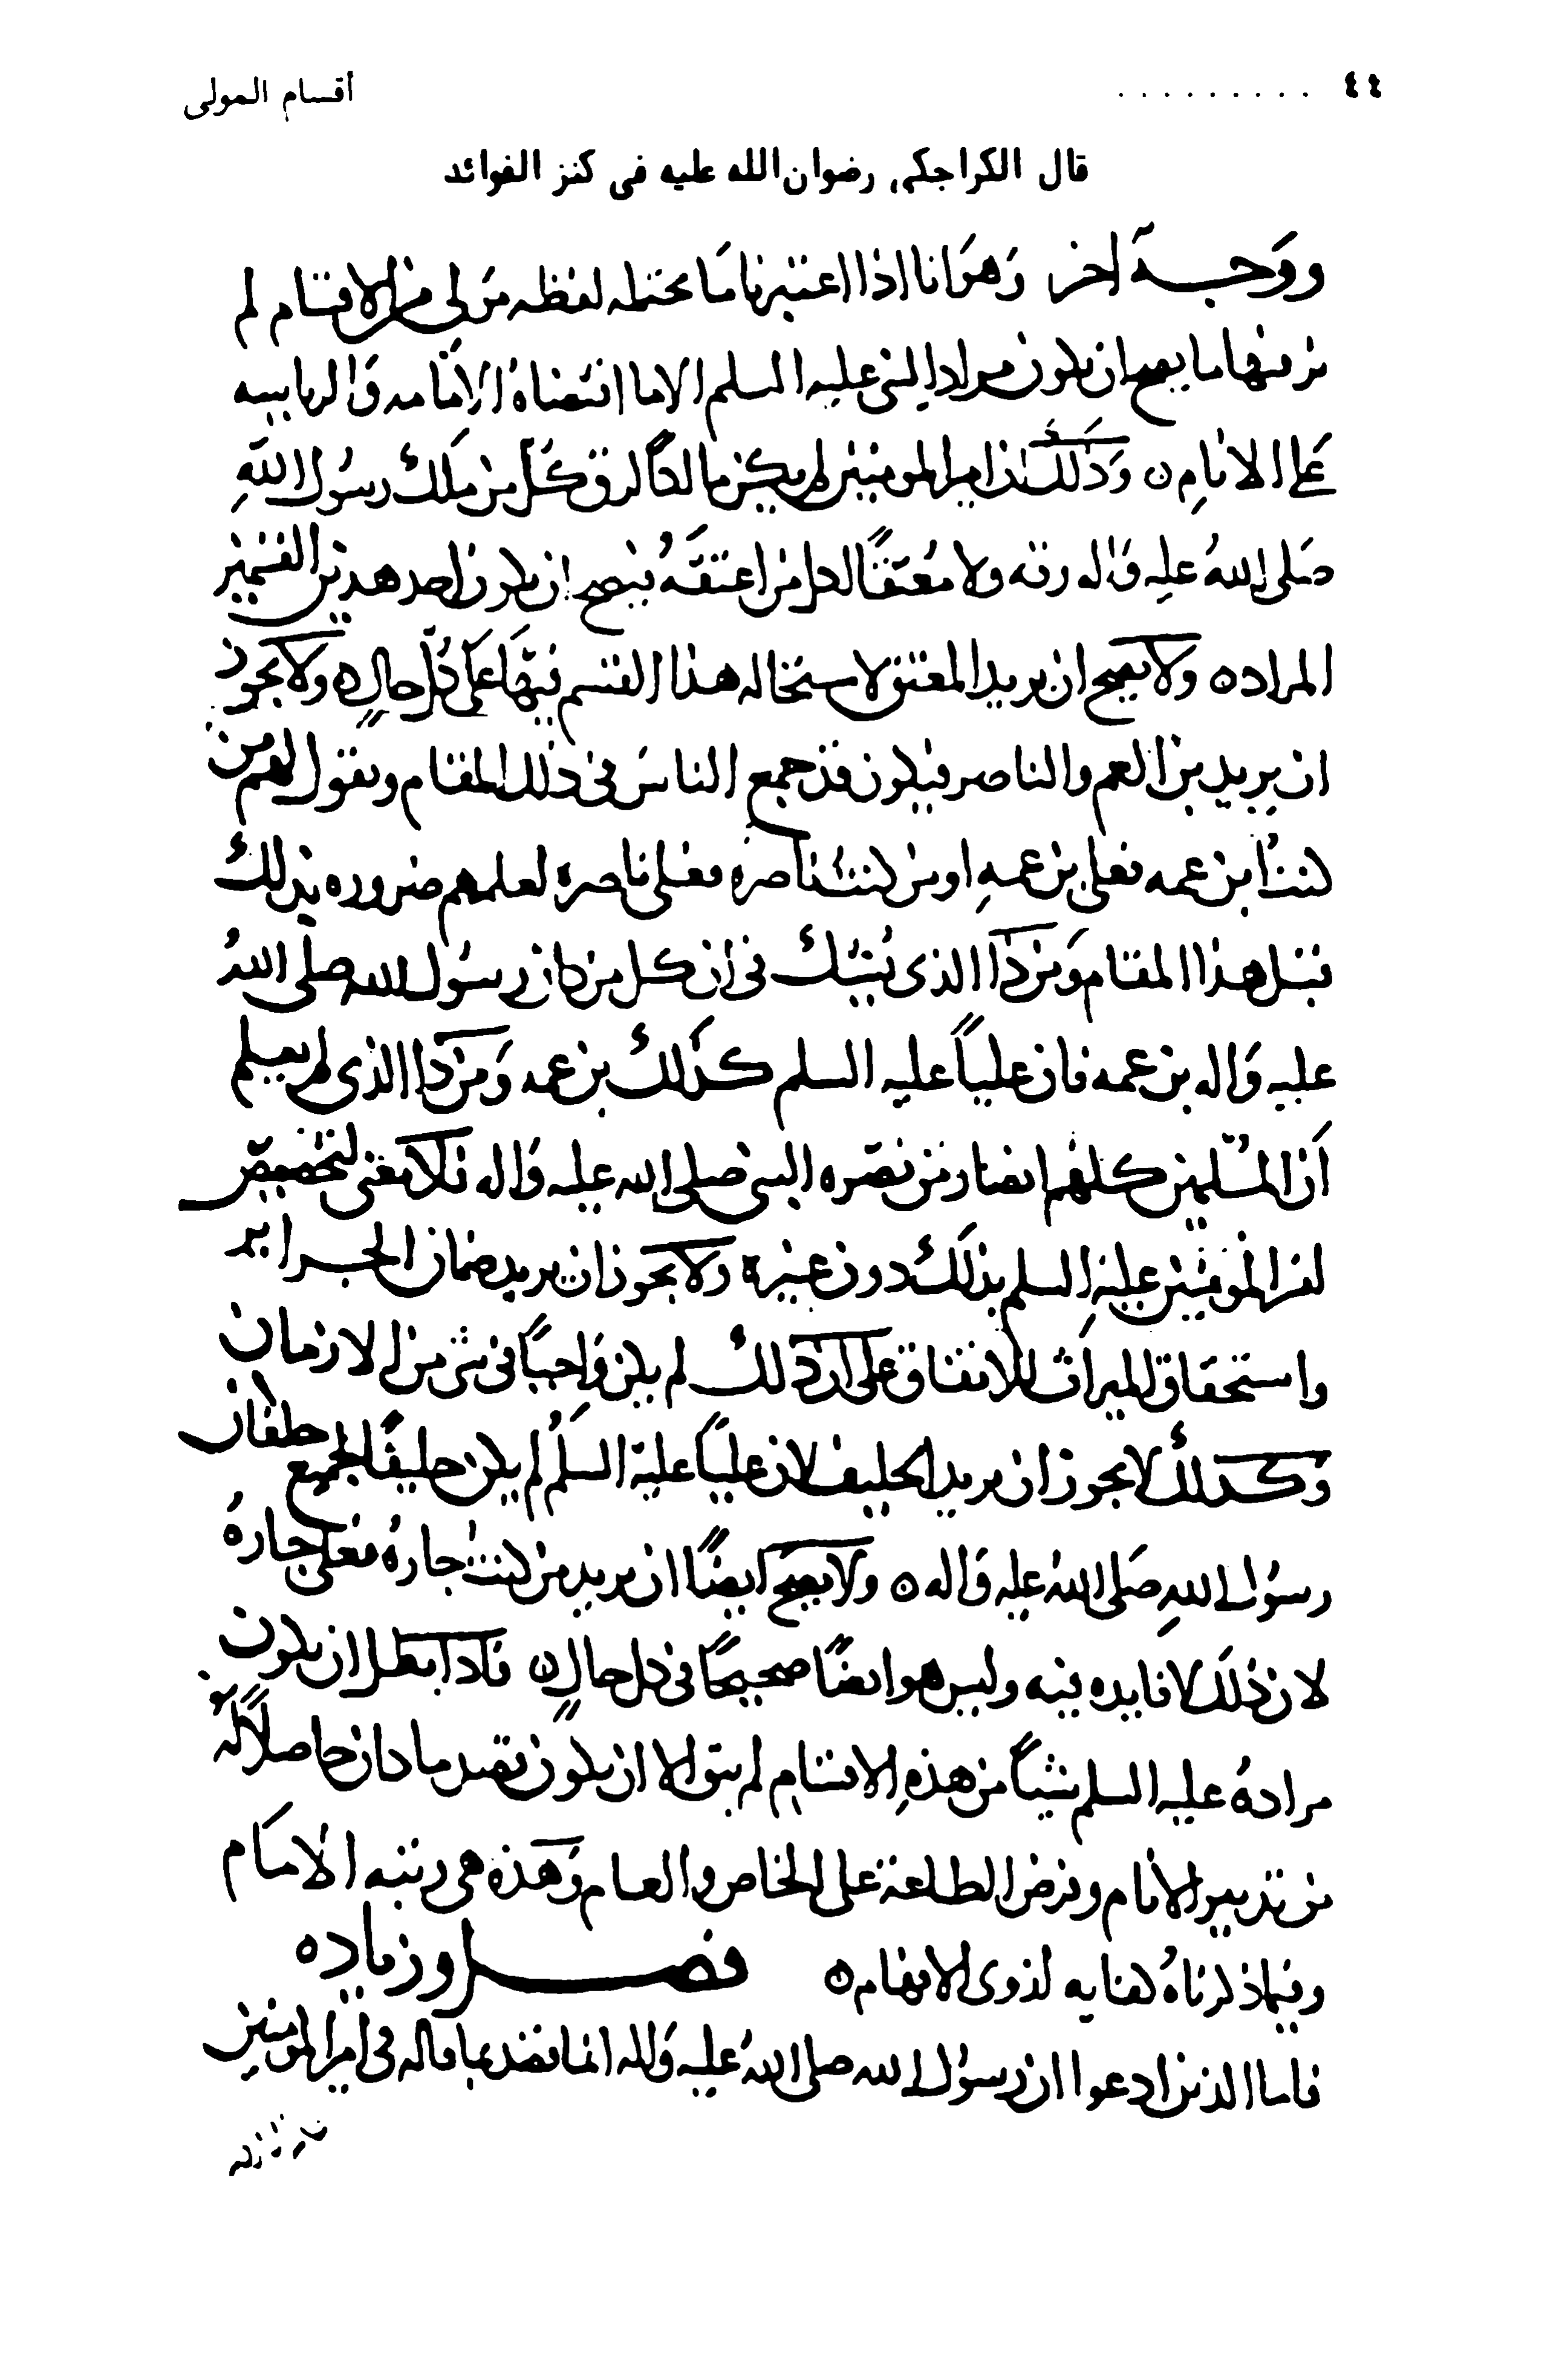 ٤٤ ......... أقسام المولى
قال الكراجكي رضوان الله عليه في كنز الفوائد
ووجه آخر وهو انا اذا اعتبرنا ما تحتمله لفظه مولى من الاقسام لم
نر منها ما يصح ان يكون مراد النبي عليه السلم الا ما اقتضاه الامامه والرياسه
على الانام ٥ وذلك ان امير المومنين لم يكن مالكا لرق كل من ملك رسول الله
صلى الله عليه واله رقه ولا معتقا لكل من اعتقه فيصح ان يكون احد هذين القسمين
المراد ٥ ولا يصح ان يريد المعتق لاستحاله هذا القسم فيهما على كل حال ٥ ولا يجوز
ان يريد بن العم والناصر فيكون قد جمع الناس في ذلك المقام ويقول لهم من
كنت ابن عمه فعلي بن عمه او من كنت ناصره فعلي ناصره لعلمهم ضروره بذلك
قبل هذا المقام ومن ذا الذي يشك في ان كل من كان رسول الله صلى الله
عليه واله بن عمه فان عليا عليه السلم كذلك بن عمه ومن ذا الذي لم يعلم
ان المسلمين كلهم انصار من نصره النبي صلى الله عليه واله فلا معنى لتخصيص
امير المومنين عليه السلم بذلك دون غيره ٥ ولا يجوز ان يريد ضمان الجراير
واستحقاق الميراث للاتفاق على ان ذلك لم يكن واجبا في شي من الازمان
وكذلك لا يجوز ان يريد الحليف لان عليا عليه السلم لم يكن حليفا لجميع حلفاء
رسول الله صلى الله عليه واله ٥ ولا يصح ايضا ان يريد من كنت جاره فعلي جاره
لان ذلك لا فايده فيه وليس هو ايضا صحيحا في كل حال ٥ فاذا بطل ان يكون
مراده عليه السلم شيئا من هذه الاقسام لم يبق الا ان يكون قصد ما كان حاصلا له
من تدبير الانام وفرض الطاعة على الخاص والعام وهذه هي رتبه الامام
وفيما ذكرناه كفايه لذوي الافهام ٥ فصل وزياده
فاما الذين ادعوا ان رسول الله صلى الله عليه واله انما قصد بما قاله في امير المومنين